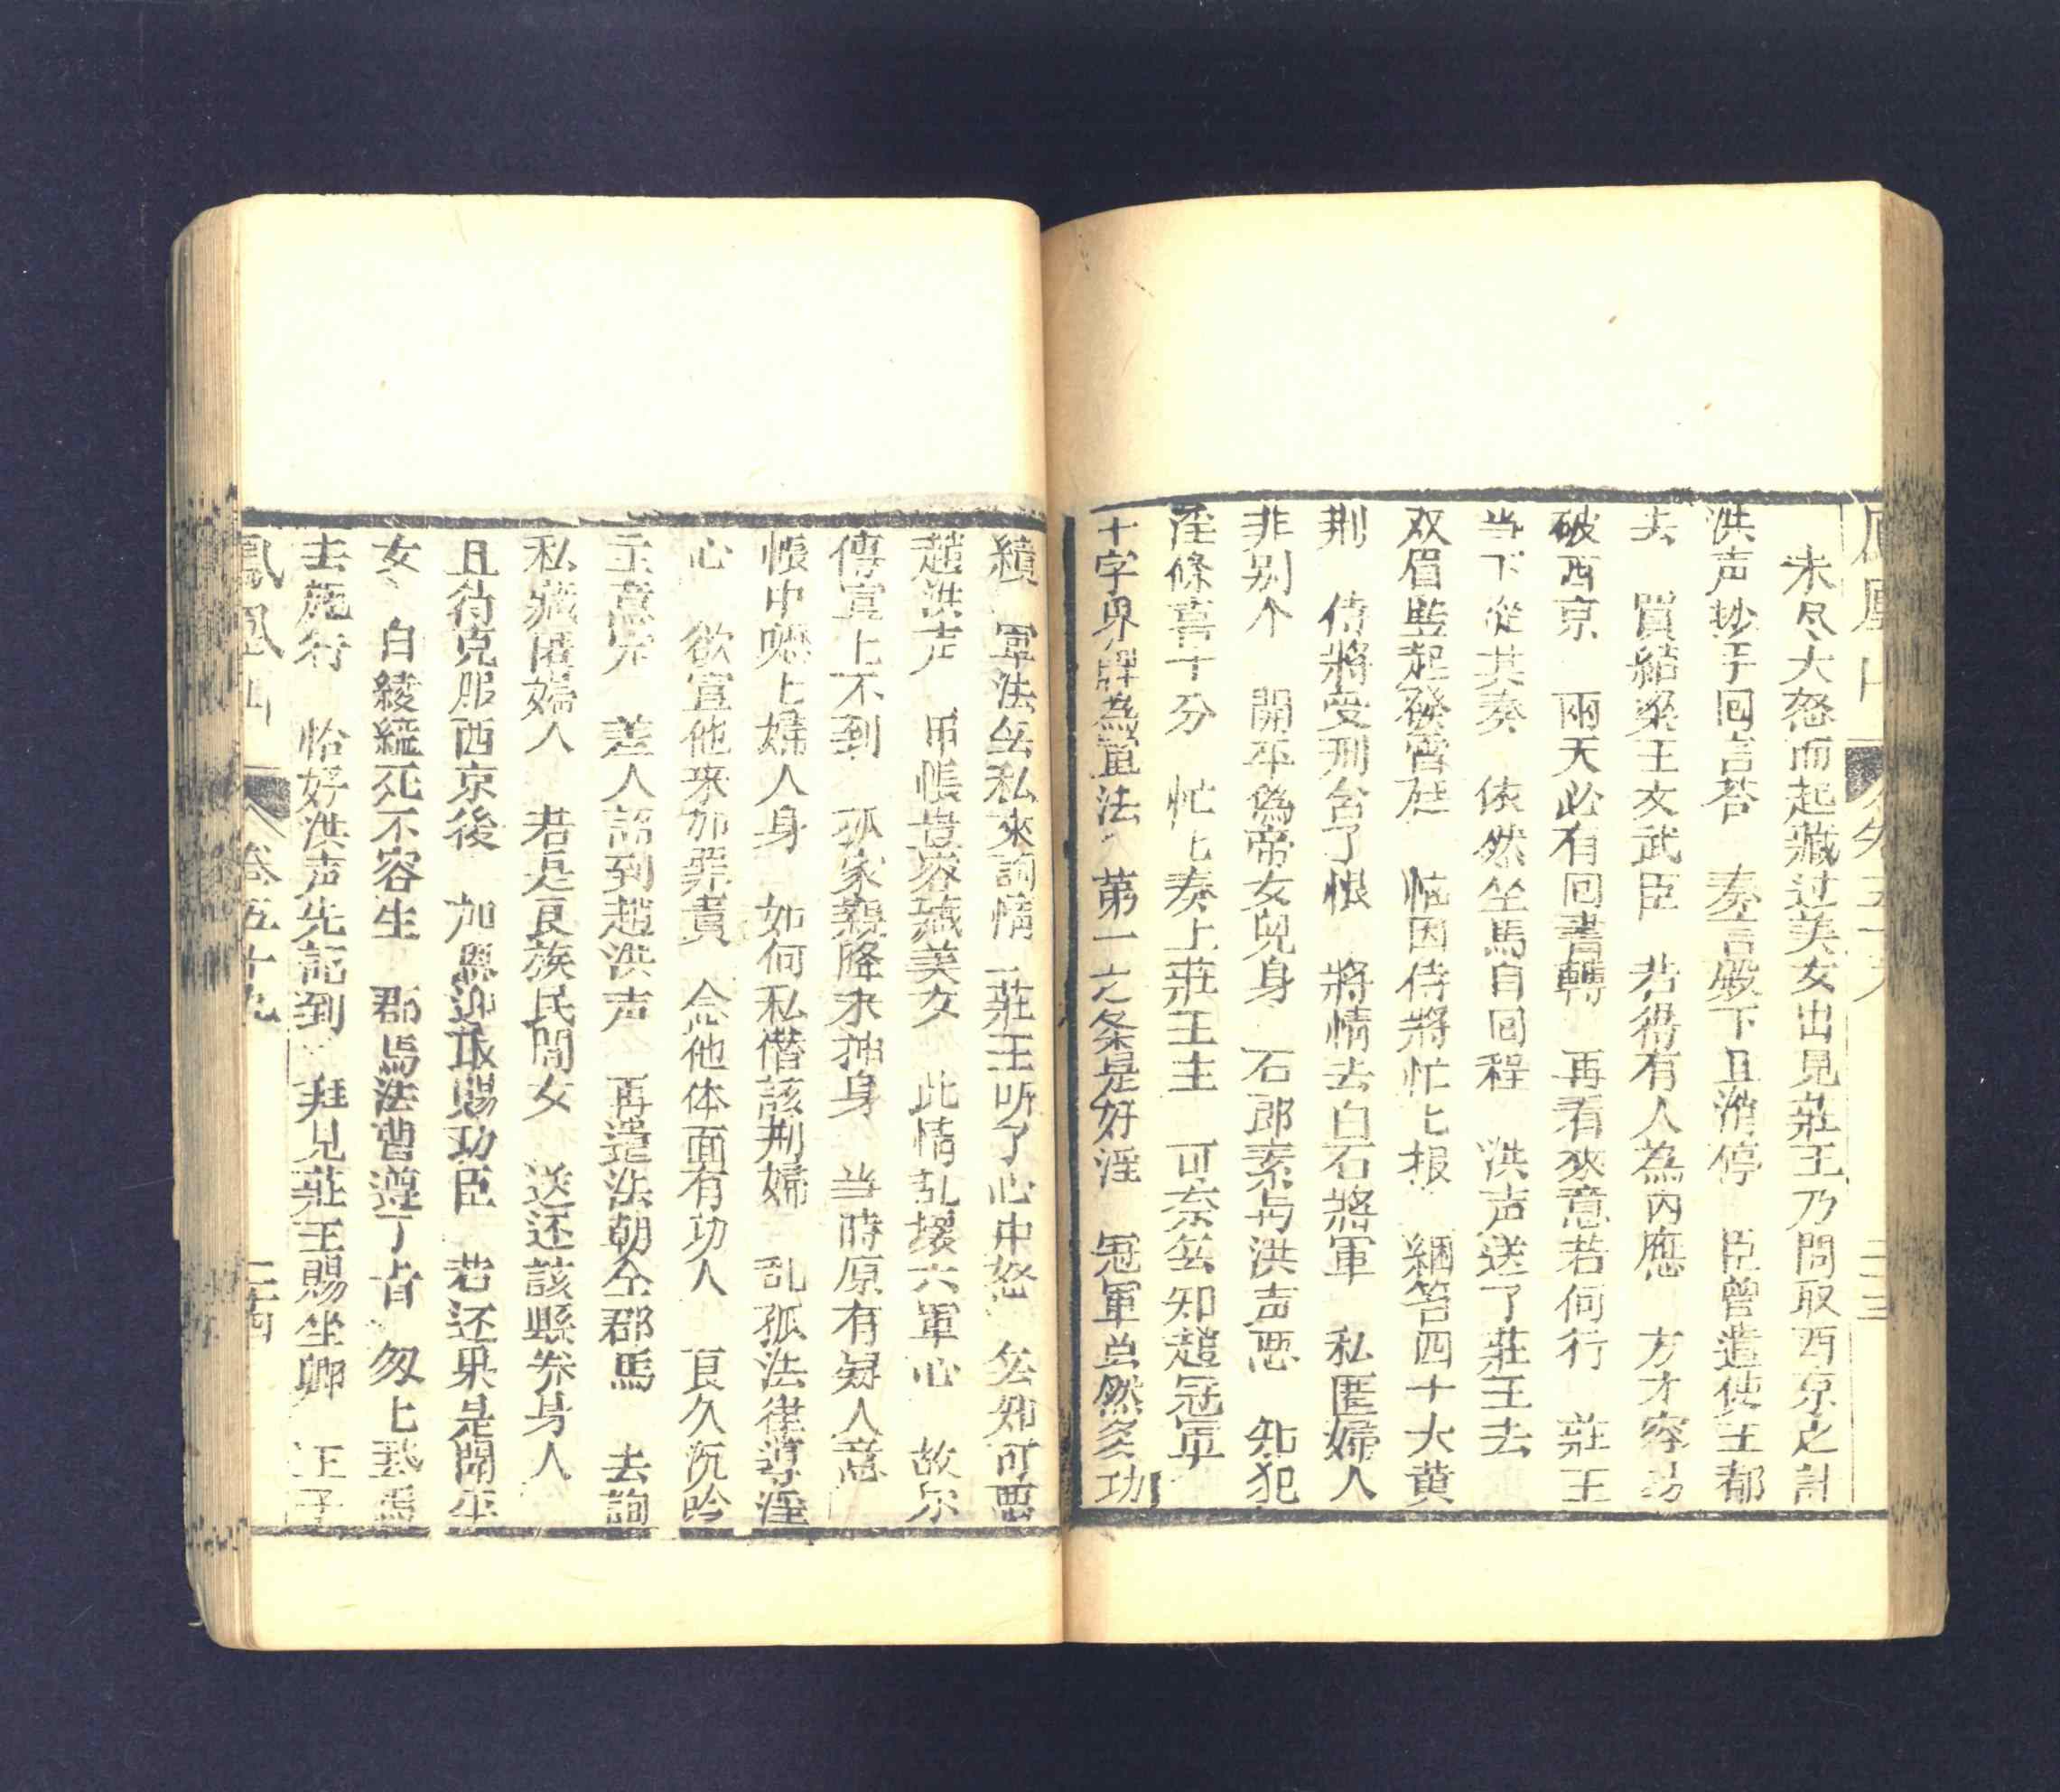 未尽大怒而起藏过美女出見莊王乃問取西京之計
洪声抄手回言荅 奏言殿下且消停 臣曾遣使王都
去 買結梁王文武臣 若得有人為內應 方才容易
破西京 兩天必有回書轉 再看來意若何行 莊王
当下從其奏 依然坐馬自回程 洪声送了莊王去
双眉竪起發雷庭 恼因侍將忙匕报 綑笞四十大黄
荆 侍將受刑台了恨 將情去白石將軍 私匿婦人
非别个 開平偽帝女兒身 石郎素与洪声恶 知犯
淫條喜十分 忙匕奏上莊王主 可奈公知趙冠軍
十字界牌為軍法 第一之条是奸淫 冠軍虽然多功
績 軍法公私來詢情 莊王听了心中怒 公知可恶
趙洪声 甲帳豈容藏美女 此情乱壞六軍心 故尔
傳宣上不到 孤家親降未抽身 当時原有疑人意
帳中蟋匕婦人身 如何私僭該荆婦 乱孤法律導淫
心 欲宣他來加罪責 念他体面有功人 良久沉吟
主意定 差人詔到趙洪声 再遣法朝仝郡馬 去詢
私藏匿婦人 若是良族民間女 送还該縣养身人
且待克服西京後 加恩迎取賜功臣 若还果是開平
女 白綾縊死不容生 郡馬法曹遵了旨 匆匕
去施行 恰好洪声先詔到 拜見莊王賜坐卿 王子
鳳凰山 卷五十九 二十四